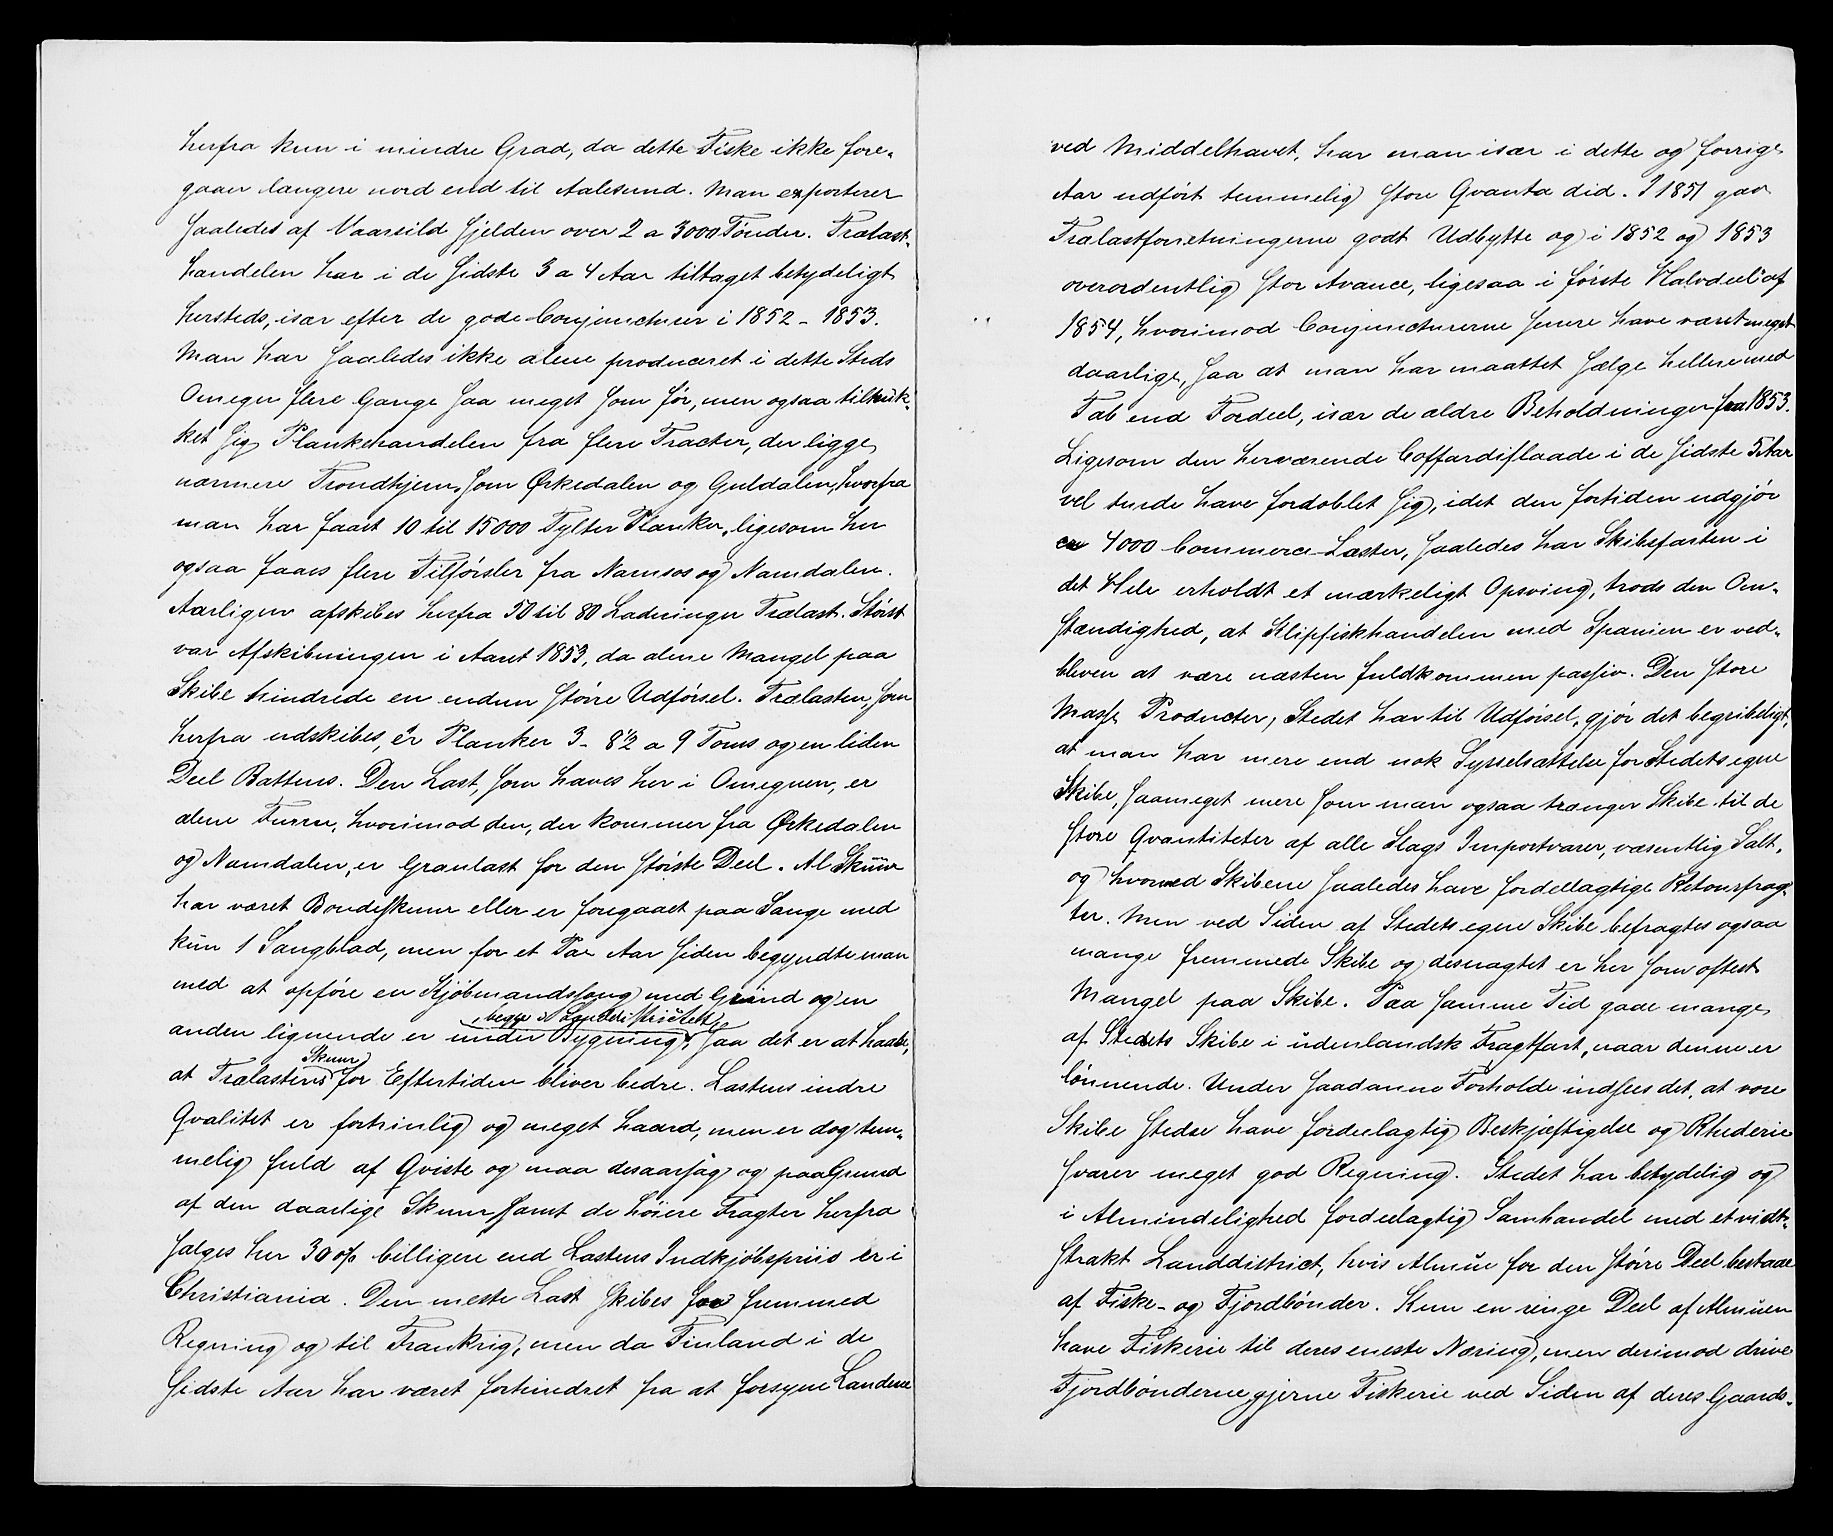 herfra kun i mindre Grad, da dette Fiske ikke fore-
gaaer længere nord end til Aalesund. Man exporterer
saaledes af Vaarsild sjelden over 2 a 3000 Tönder. Trælast-
handelen har i de sidste 3 a 4 Aar tiltaget betydeligt
hersteds, især efter de gode Conjuncturer i 1852 - 1853.
Man har saaledes ikke alene produceret i dette Steds
Omegn flere Gange saa meget som før, men ogsaa tiltruk-
ket sig Plankehandelen fra flere Tracter, der ligge
nærmere Trondhjem, som Ørkedalen og Guldalen, hvorfra
man har faaet 10 til 15000 Tylter Planker, ligesom her
ogsaa faaes flere Tilførsler fra Namsos og Namdalen.
Aarligen afskibes herfra 50 til 80 Ladninger Trælast. Størst
var Afskibningen i Aaret 1853, da alene Mangel paa
Skibe hindrede en endnu større Udførsel. Trælasten, som
herfra udskibes, er Planker 3 - 8 1/2 a 9 Toms og en liden
Deel Battens. Den Last, som haves her i Omegnen, er
alene Furru, hvorimod den, der kommer fra Ørkedalen
og Namdalen, er Granlast for den største Deel. Al Skuur
har været Bondeskuur eller er foregaaet paa Sauge med
kun 1 Saugblad, men for et Par Aar siden begyndte man
med at opføre en Kjøbmandssaug med Grind og en
anden lignende er under Bygning, , begge i Landdistrictet, saa det er at haabe,
at Trælastens Skuur for Eftertiden bliver bedre. Lastens indre
Qvalitet er fortrinlig og meget haard, men er dog tem-
melig fuld af Qviste og maa desaarsag og paa Grund
af den daarlige Skuur samt de høiere Fragter herfra
sælges her 30 o/o billigere end Lastens Indkjøbspriis er i
Christiania. Den meste Last skibes for fremmed
Regning og til Frankrig, men da Finland i de
sidste Aar har været forhindret fra at forsyne Landene
ved Middelhavet, har man især i dette og forrige
Aar udført temmelig store Qvanta did. I 1851 gav
Trælastforretningerne godt Udbytte og i 1852 og 1853
overordentlig stor Avance, ligesaa i første Halvdeel af
1854, hvorimod Conjuncturerne senere have været meget
daarlige, saa at man har maattet sælge hellere med
Tab end Fordeel, især de ældre Beholdninger fra 1853.
Ligesom den herværende Coffardiflaade i de sidste 5 Aar
vel turde have fordoblet sig, idet den fortiden udgjør
ca 4000 Commerce-Læster, saaledes har Skibsfarten i
det Hele erholdt et mærkeligt Opsving, trods den Om-
stændighed, at Klipfiskhandelen med Spanien er ved-
bleven at være næsten fuldkommen passiv. Den store
Masse Producter, Stedet har til Udførsel, gjør det begribeligt,
at man har mere end nok Sysselsættelse for Stedets egne
Skibe, saameget mere som man ogsaa trænger Skibe til de
store Qvantiteter af alle Slags Importvarer, væsentlig Salt,
og hvorved Skibene saaledes have fordelagtige Retourfrag-
ter. Men ved Siden af Stedets egne Skibe befragtes ogsaa
mange fremmede Skibe og desuagtet er her som oftest
Mangel paa Skibe. Paa samme Tid gaae mange
af Stedets Skibe i udenlandsk Fragtfart, naar denne er
lønnende. Under saadanne Forholde indsees det, at vore
Skibe stedse have fordeelagtig Beskjæftigelse og Rhederie
svarer meget god Regning. Stedet har betydelig og
i Almindelighed fordeelagtig Samhandel med et vidt-
strakt Landdistrict, hvis Almue for den større Deel bestaae
af Fiske- og Fjordbønder. Kun en ringe Deel af Almuen
have Fiskerie til deres eneste Næring, men derimod drive
Fjordbønderne gjerne Fiskerie ved Siden af deres Gaards-